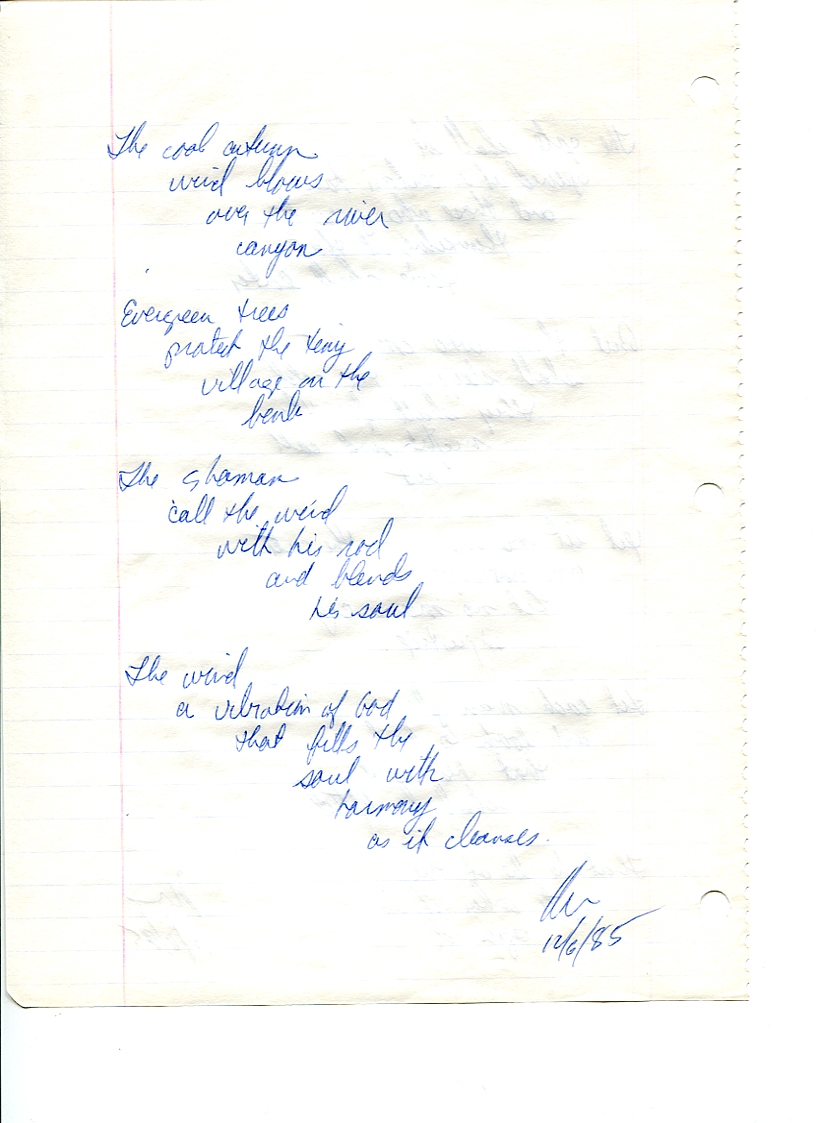 The cool autumn
wind blows
over the river
canyon
Evergreen trees
protect the tiny
village on the
bank
The shaman
call the wind
with his rod
and blends
his soul
The wind
a vibration of God
that fills the
soul with
harmony
as it cleanses.
12/6/85